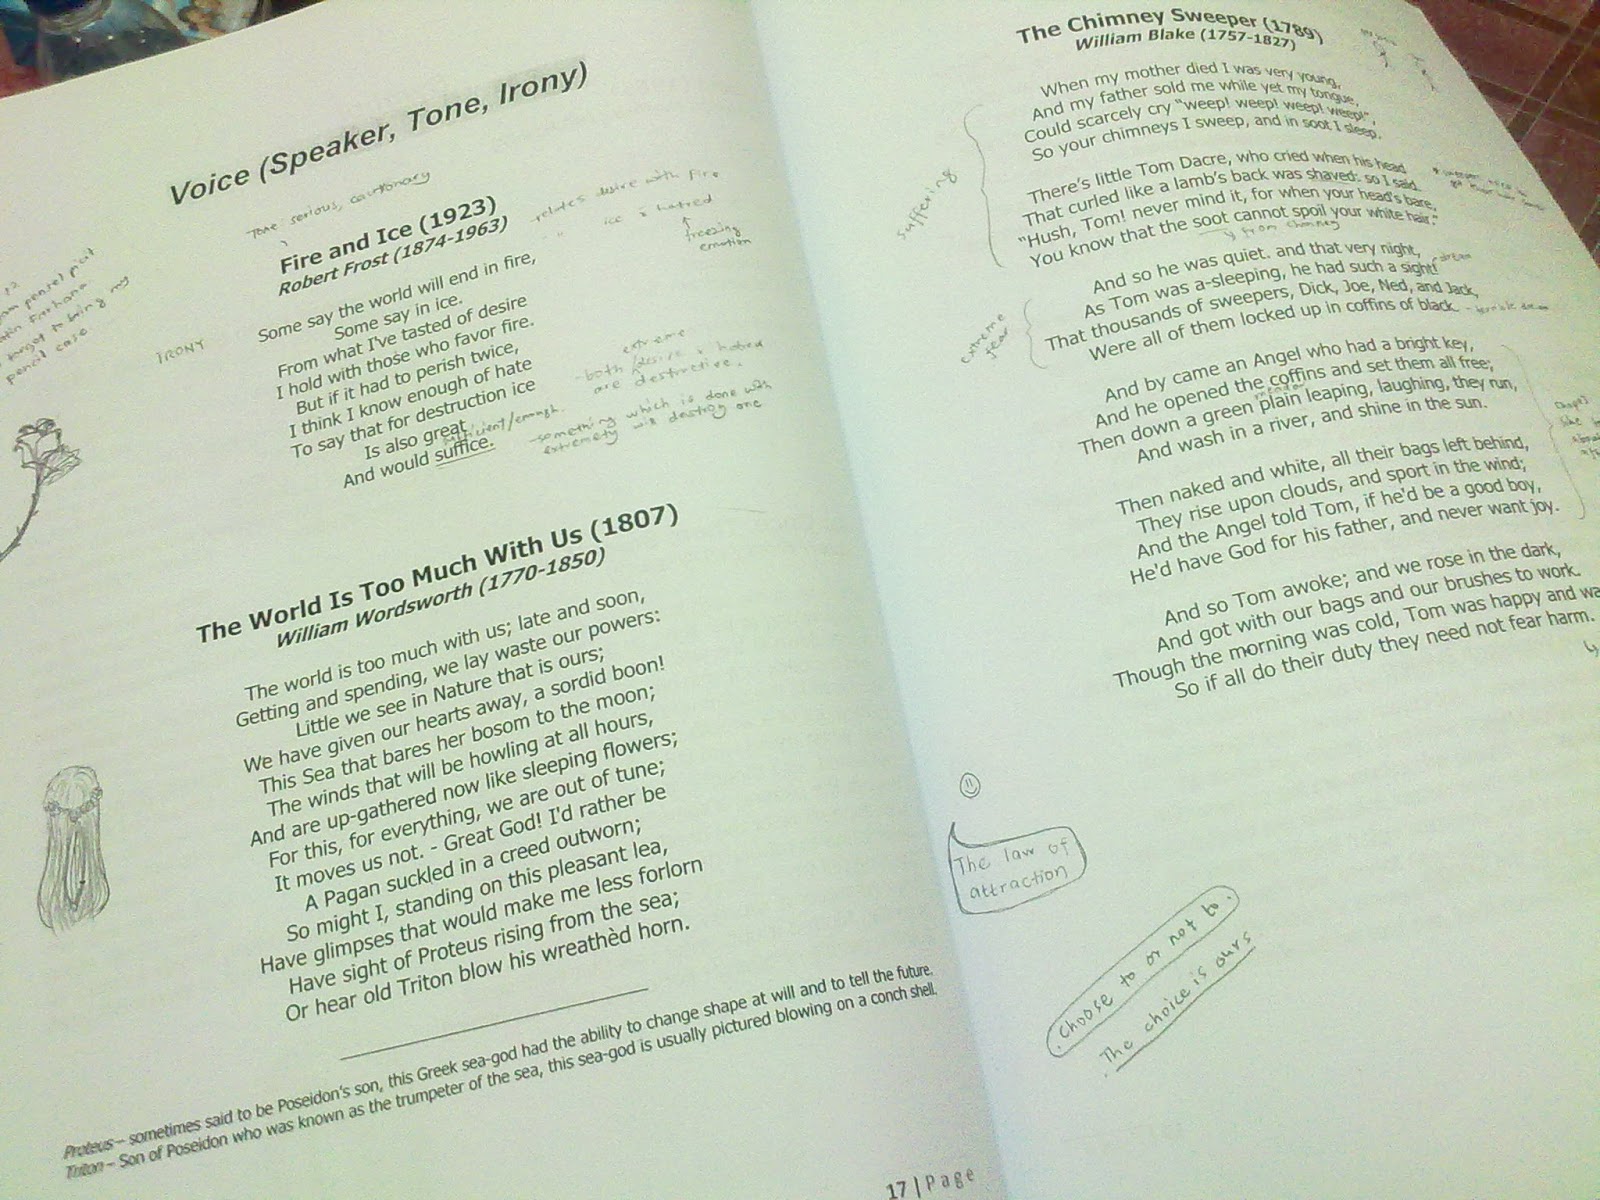 Voice (Speaker, Tone, Irony)
Tone: serious, cautionary
Fire and Ice (1923)
Robert Frost (1874-1963)
relates desire with fire
" " ice & hatred
freezing
emotion
Some say the world will end in fire,
Some say in ice.
From what I've tasted of desire
I hold with those who favor fire.
But if it had to perish twice,
I think I know enough of hate
To say that for destruction ice
Is also great
And would suffice.
IRONY
forgot to bring my
pencil case
extreme
- both desire & hatred
are destructive.
sufficient/enough.
- something which is done with
extremety will destroy one
The World Is Too Much With Us (1807)
William Wordsworth (1770-1850)
The world is too much with us; late and soon,
Getting and spending, we lay waste our powers:
Little we see in Nature that is ours;
We have given our hearts away, a sordid boon!
This Sea that bares her bosom to the moon;
The winds that will be howling at all hours,
And are up-gathered now like sleeping flowers;
For this, for everything, we are out of tune;
It moves us not. - Great God! I'd rather be
A Pagan suckled in a creed outworn;
So might I, standing on this pleasant lea,
Have glimpses that would make me less forlorn
Have sight of Proteus rising from the sea;
Or hear old Triton blow his wreathèd horn.
Proteus – sometimes said to be Poseidon's son, this Greek sea-god had the ability to change shape at will and to tell the future.
Triton – Son of Poseidon who was known as the trumpeter of the sea, this sea-god is usually pictured blowing on a conch shell.
17 | Page
The Chimney Sweeper (1789)
William Blake (1757-1827)
When my mother died I was very young,
And my father sold me while yet my tongue,
Could scarcely cry "weep! weep! weep! weep!",
So your chimneys I sweep, and in soot I sleep.
suffering
There's little Tom Dacre, who cried when his head
That curled like a lamb's back was shaved: so I said.
"Hush, Tom! never mind it, for when your head's bare,
You know that the soot cannot spoil your white hair."
from chimney
And so he was quiet. and that very night,
As Tom was a-sleeping, he had such a sight!
dream
That thousands of sweepers, Dick, Joe, Ned, and Jack,
Were all of them locked up in coffins of black.
- terrible dream
extreme
fear
And by came an Angel who had a bright key,
And he opened the coffins and set them all free;
meadow
Then down a green plain leaping, laughing, they run,
And wash in a river, and shine in the sun.
Then naked and white, all their bags left behind,
They rise upon clouds, and sport in the wind;
And the Angel told Tom, if he'd be a good boy,
He'd have God for his father, and never want joy.
And so Tom awoke; and we rose in the dark,
And got with our bags and our brushes to work.
Though the morning was cold, Tom was happy and wa
So if all do their duty they need not fear harm.
The law of
attraction
Choose to or not to.
The choice is ours